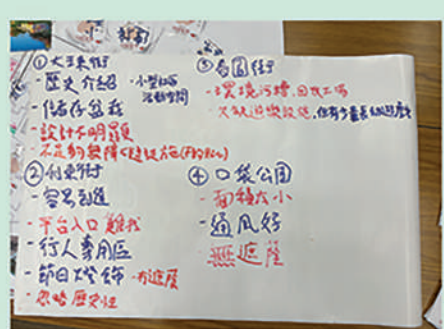 ① 大王東街
- 歷史介紹 · 小型社區活動空間
- 保存盆栽
- 設計不明顯
- 不足夠無障礙設施
② 利東街
- 容易到達
- 平台入口難找
- 行人專用區
- 節日燈飾 · 冇遮蔭
- 忽略歷史性
③
- 環境污糟,回收工場
- 欠缺遊樂設施,但有少量長者設施
④ 口袋公園
- 面積太小
- 通風好
- 無遮蔭